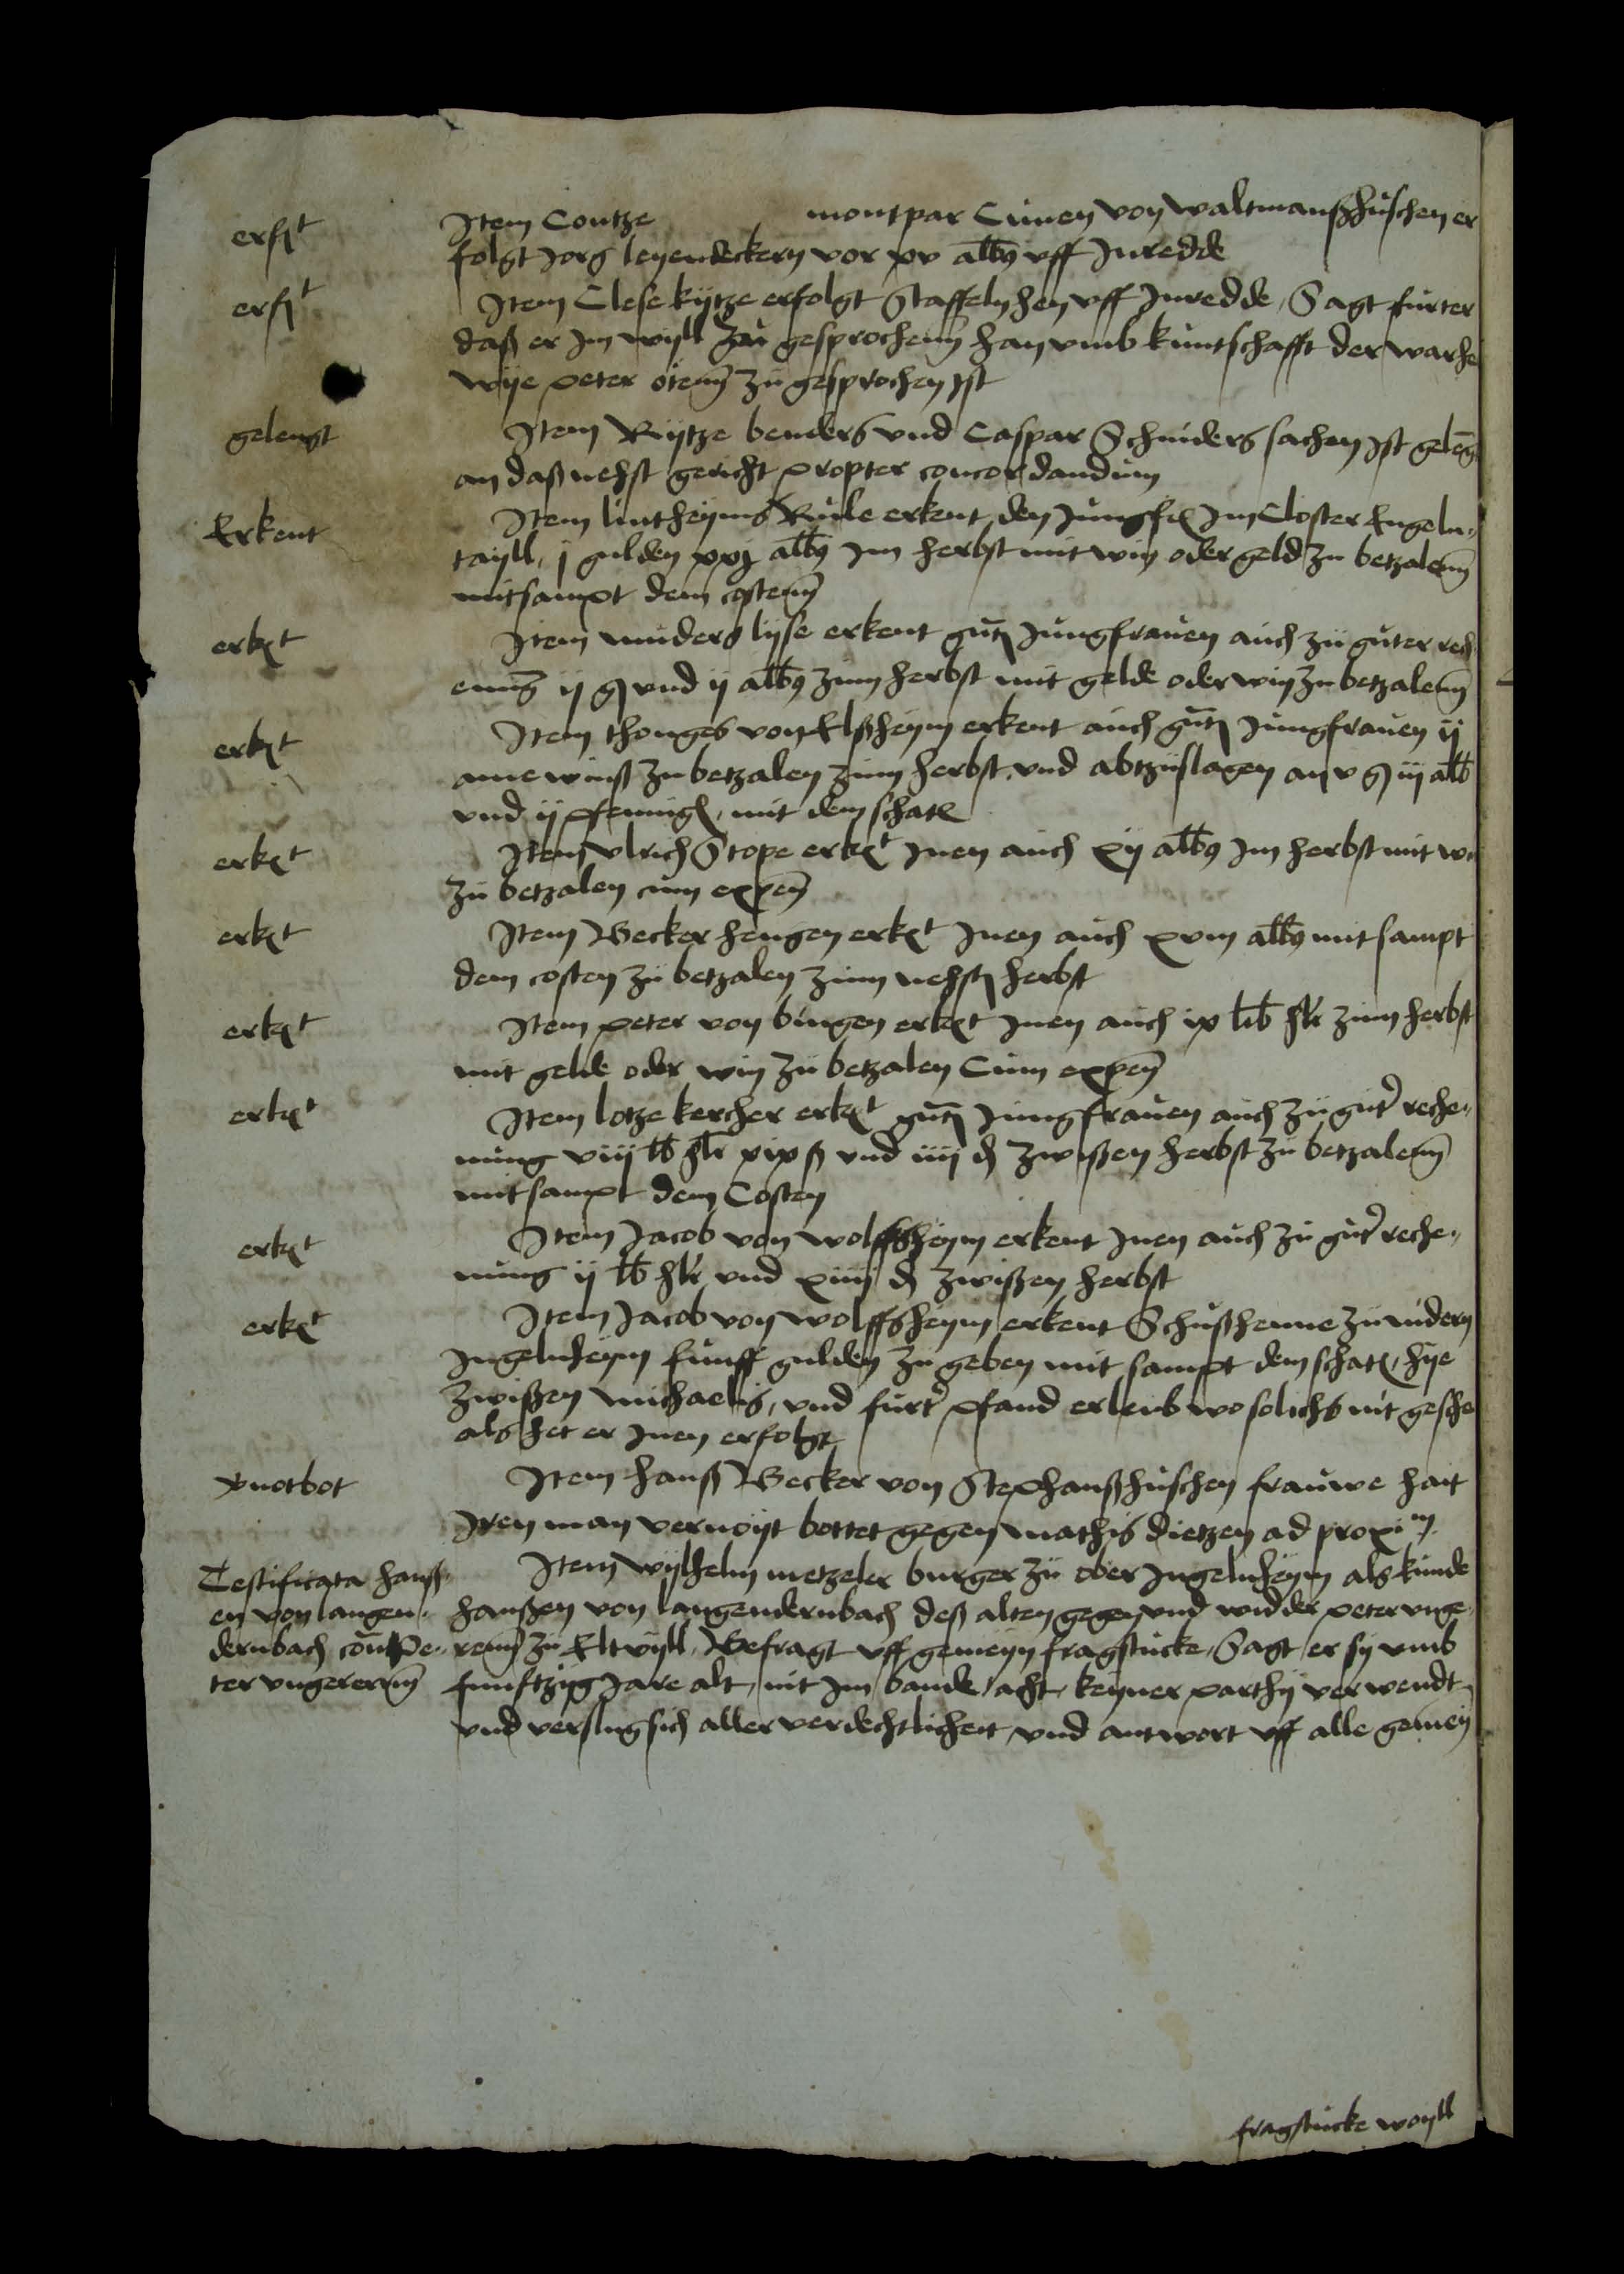 erf<i>t</i>
Item Contze montpar Cunen von waltmanßhuschen er
folgt Jorg leyendeckern vor xv alb9 vff Inredde
erft
Item Clese kytze erfolgt Staffelnhen vff Inredde, Sagt furter
daß er Im wyll zu gesprochenn han vmb kuntschafft der warhe
wye peter otenn zu gesprochen Ist
gelengt
Item Rytze benders vnd Caspar Schniders sachen Ist geleng
an daß nehst gericht propter concordandum
Erkent
Item lintheyms Rule erkent den Jungfr Im Closter Engeln„
tayll, j gulden xxj alb9 Im herbst mit win oder geld zu betzalenn
mitsampt dem costenn
erkt
Item muders lyse erkent gntn Jungfrauen auch zu guter rech
enung ij g vnd ij alb9 zum herbst mit gelde oder win zu betzalenn
erkt
Item thonges von Elßheym erkent auch gntn Jungfrauen ij
ame winß zu betzalen zum herbst, vnd abtzuslagen an v g iij alb
vnd ij pfennig, mit dem schaten
erkt
Item vlrich Stope erkt Inen auch xij alb9 Im herbst mit wi
zu betzalen cum expen
erkt
Item Becker hengen erkt Inen auch xviii alb9 mit sampt
dem costen zu betzalen zum nehstn herbst
erkt
Item peter von bingen erkt Inen auch ix lib hlr zum herbst
mit gelde oder win zu betzalen Cum expen
erkt
Item lotze kercher erkt gntn Jungfrauen auch zu guter reche„
nung viij lb hlr xix ß vnd iiij d zwißen herbst zu betzalenn
mitsampt dem Costen
erkt
Item Jacob von wolffsheym erkent Inen auch zu guter reche„
nung ij lb hlr vnd xiiij d zwißen herbst
erkt
Item Jacob von wolffsheym erkent Schußhenne zu nidern
Ingelnheym funff gulden zu geben mit sampt dem schaten, hye
zwißen michaelis, vnd furter pfand erleub wo solichs nit gesche
als het er Inen erfolgt
Vnotbot
Item hanß Becker von Stephanßhuschen frauwe hait
Iren man vernoyt bottet gegen mathis dietzen ad proxim
Testificata hanß„
en von langen„
dernbach cont Pe„
ter vngerernn
Item wylhelm metzeler burger zu ober Ingelnheym als kunde
hanßen von langendernbach deß alten gegen vnd widder peter vnge„
rernn zu Eltvyll, Befragt vff gemeyn fragstucke, Sagt er sy vmb
funftzyg Jare alt, nit Im bande, acht, keyner parthy verwendt,
vnd verslug sich aller verdechtlicheit vnd antwort vff alle gemeyn
fragstucke woyll